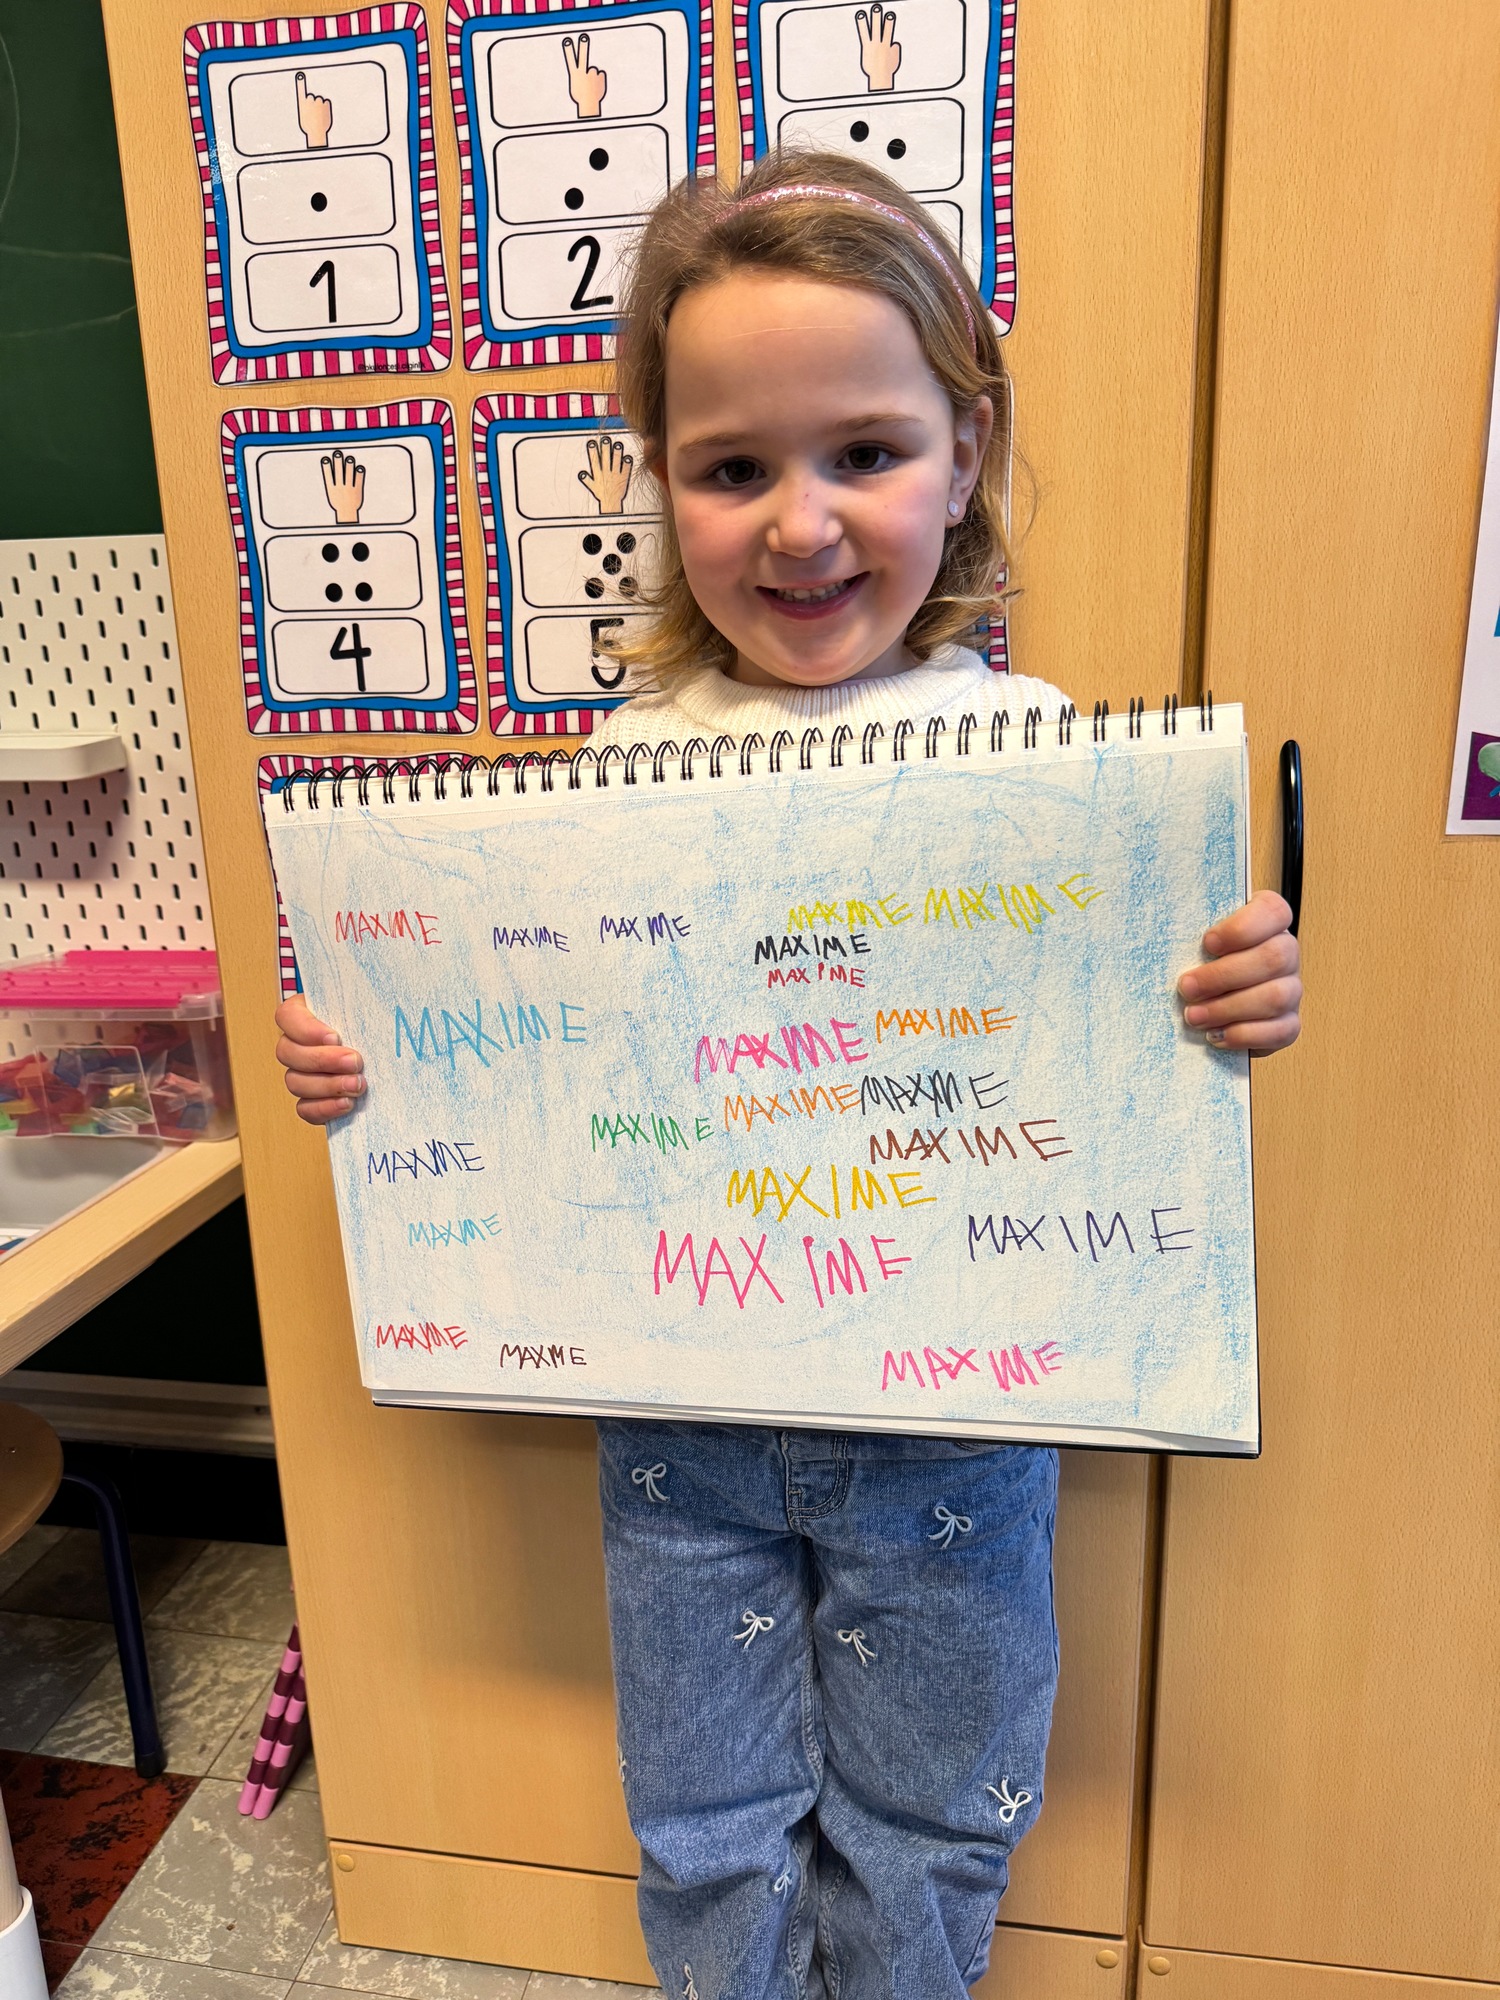 1
2
4
5
MAXIME MAXIME MAXIME MAXIME MAXIME
MAXIME
MAXIME
MAXIME MAXIME MAXIME
MAXIME MAXIME MAXIME
MAXIME MAXIME
MAXIME
MAXIME MAXIME MAXIME
MAXIME MAXIME MAXIME